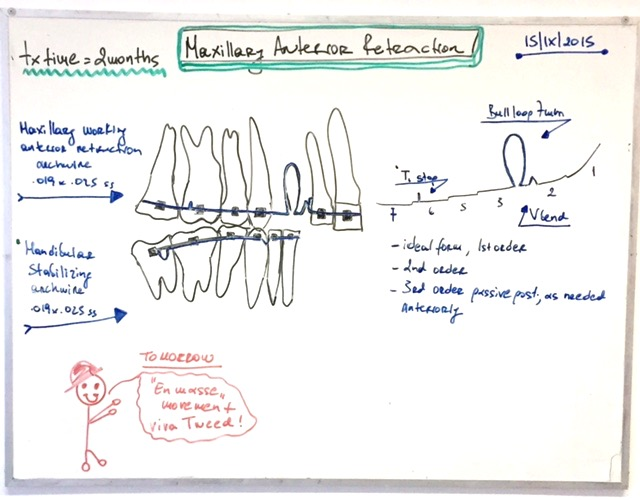 tx time = 2 months
Maxillary Anterior Retraction
15/IX/2015
Maxillary working
anterior retraction
archwire
.019 x .025 ss
Mandibular
Stabilizing
archwire
.019 x .025 ss
Bull loop 7mm
stop
7 6 5 3 2 1
V bend
- ideal form, 1st order
- 2nd order
- 3rd order passive post., as needed
Anteriorly
TOMORROW
"En masse„
movement
viva Tweed!